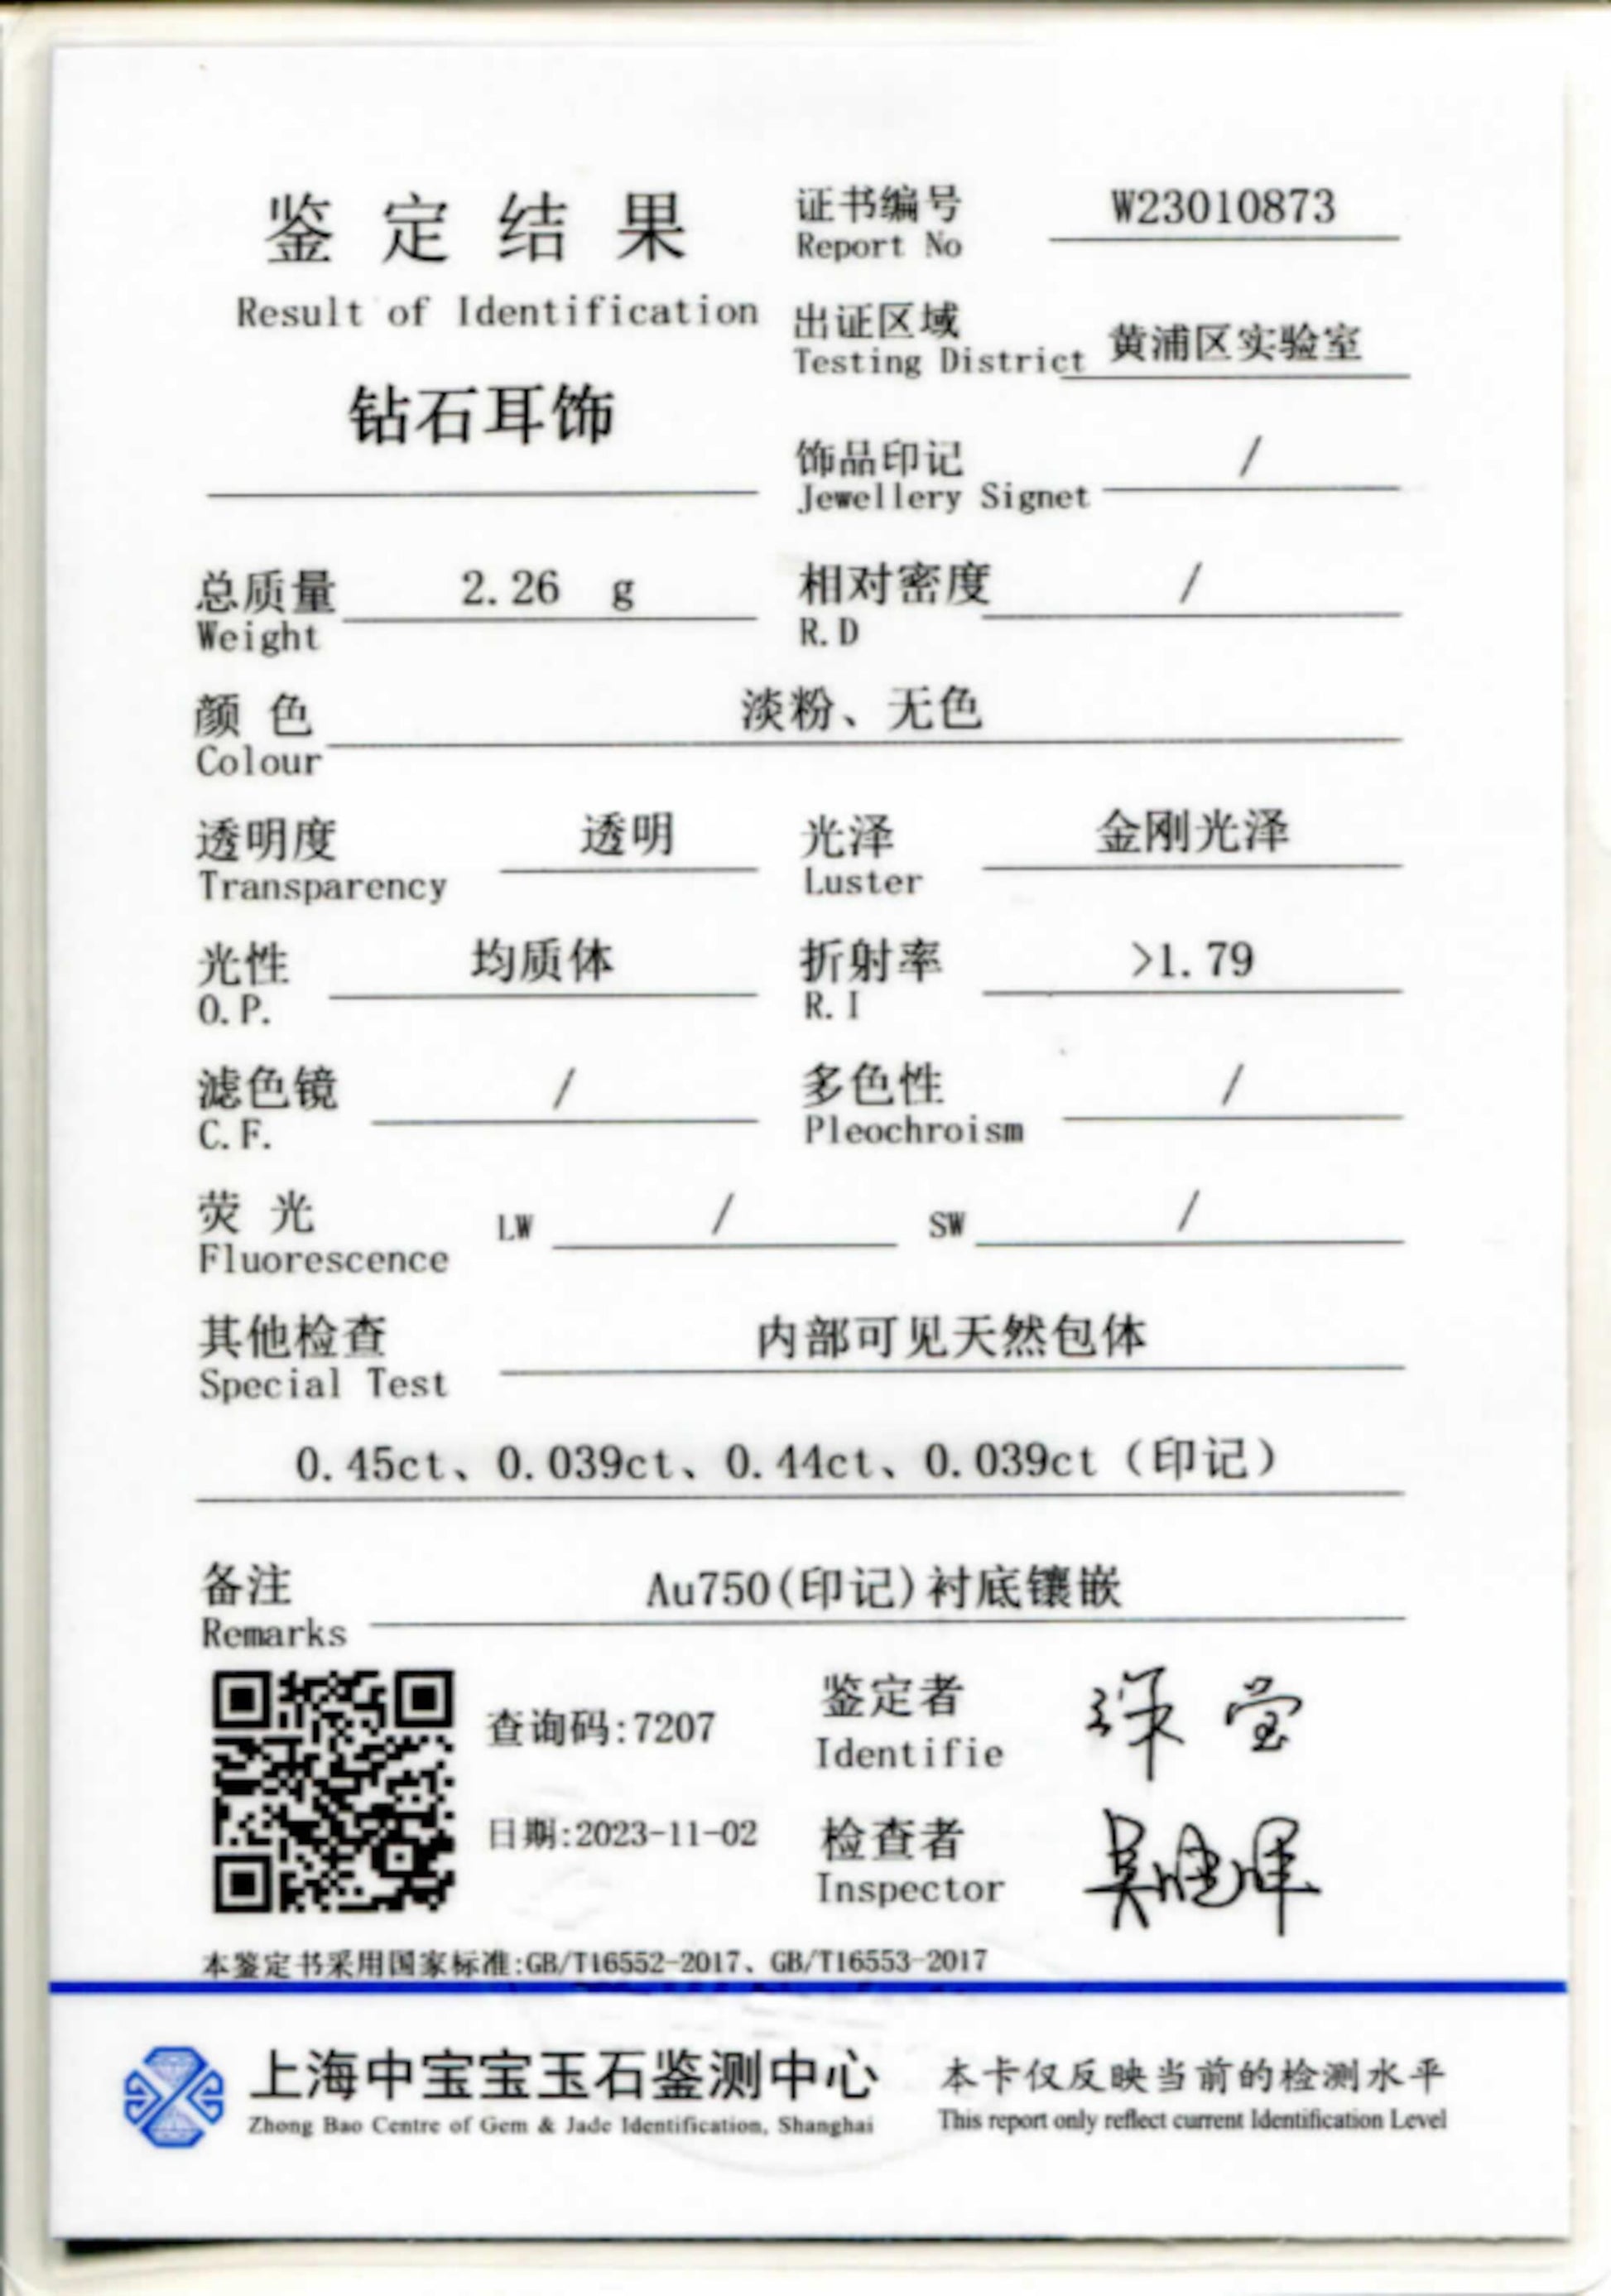 鉴定结果
Result of Identification
钻石耳饰
证书编号 W23010873
Report No
出证区域 黄浦区实验室
Testing District
饰品印记 /
Jewellery Signet
总质量 2.26 g 相对密度 /
Weight R.D
颜色 淡粉、无色
Colour
透明度 透明 光泽 金刚光泽
Transparency Luster
光性 均质体 折射率 >1.79
O.P. R.I
滤色镜 / 多色性 /
C.F. Pleochroism
荧光 LW / SW /
Fluorescence
其他检查 内部可见天然包体
Special Test
0.45ct、0.039ct、0.44ct、0.039ct（印记）
备注 Au750(印记)衬底镶嵌
Remarks
查询码:7207 鉴定者
Identifie
日期:2023-11-02 检查者
Inspector
本鉴定书采用国家标准:GB/T16552-2017、GB/T16553-2017
上海中宝宝玉石鉴测中心 本卡仅反映当前的检测水平
Zhong Bao Centre of Gem & Jade Identification, Shanghai This report only reflect current Identification Level